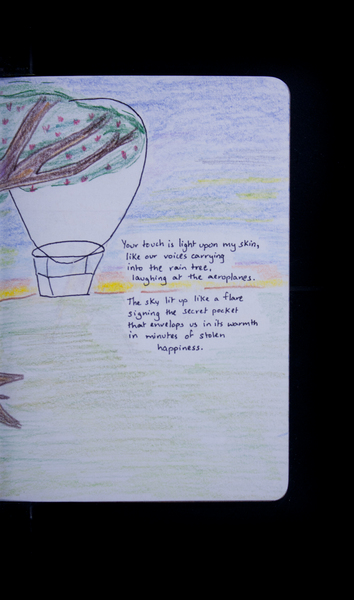 Your touch is light upon my skin,
like our voices carrying
into the rain tree,
laughing at the aeroplanes.
The sky lit up like a flare
signing the secret pocket
that envelops us in its warmth
in minutes of stolen
happiness.